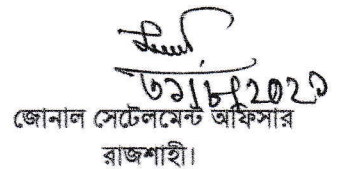 ৩১/৮/2021
জোনাল সেটেলমেন্ট অফিসার
রাজশাহী।